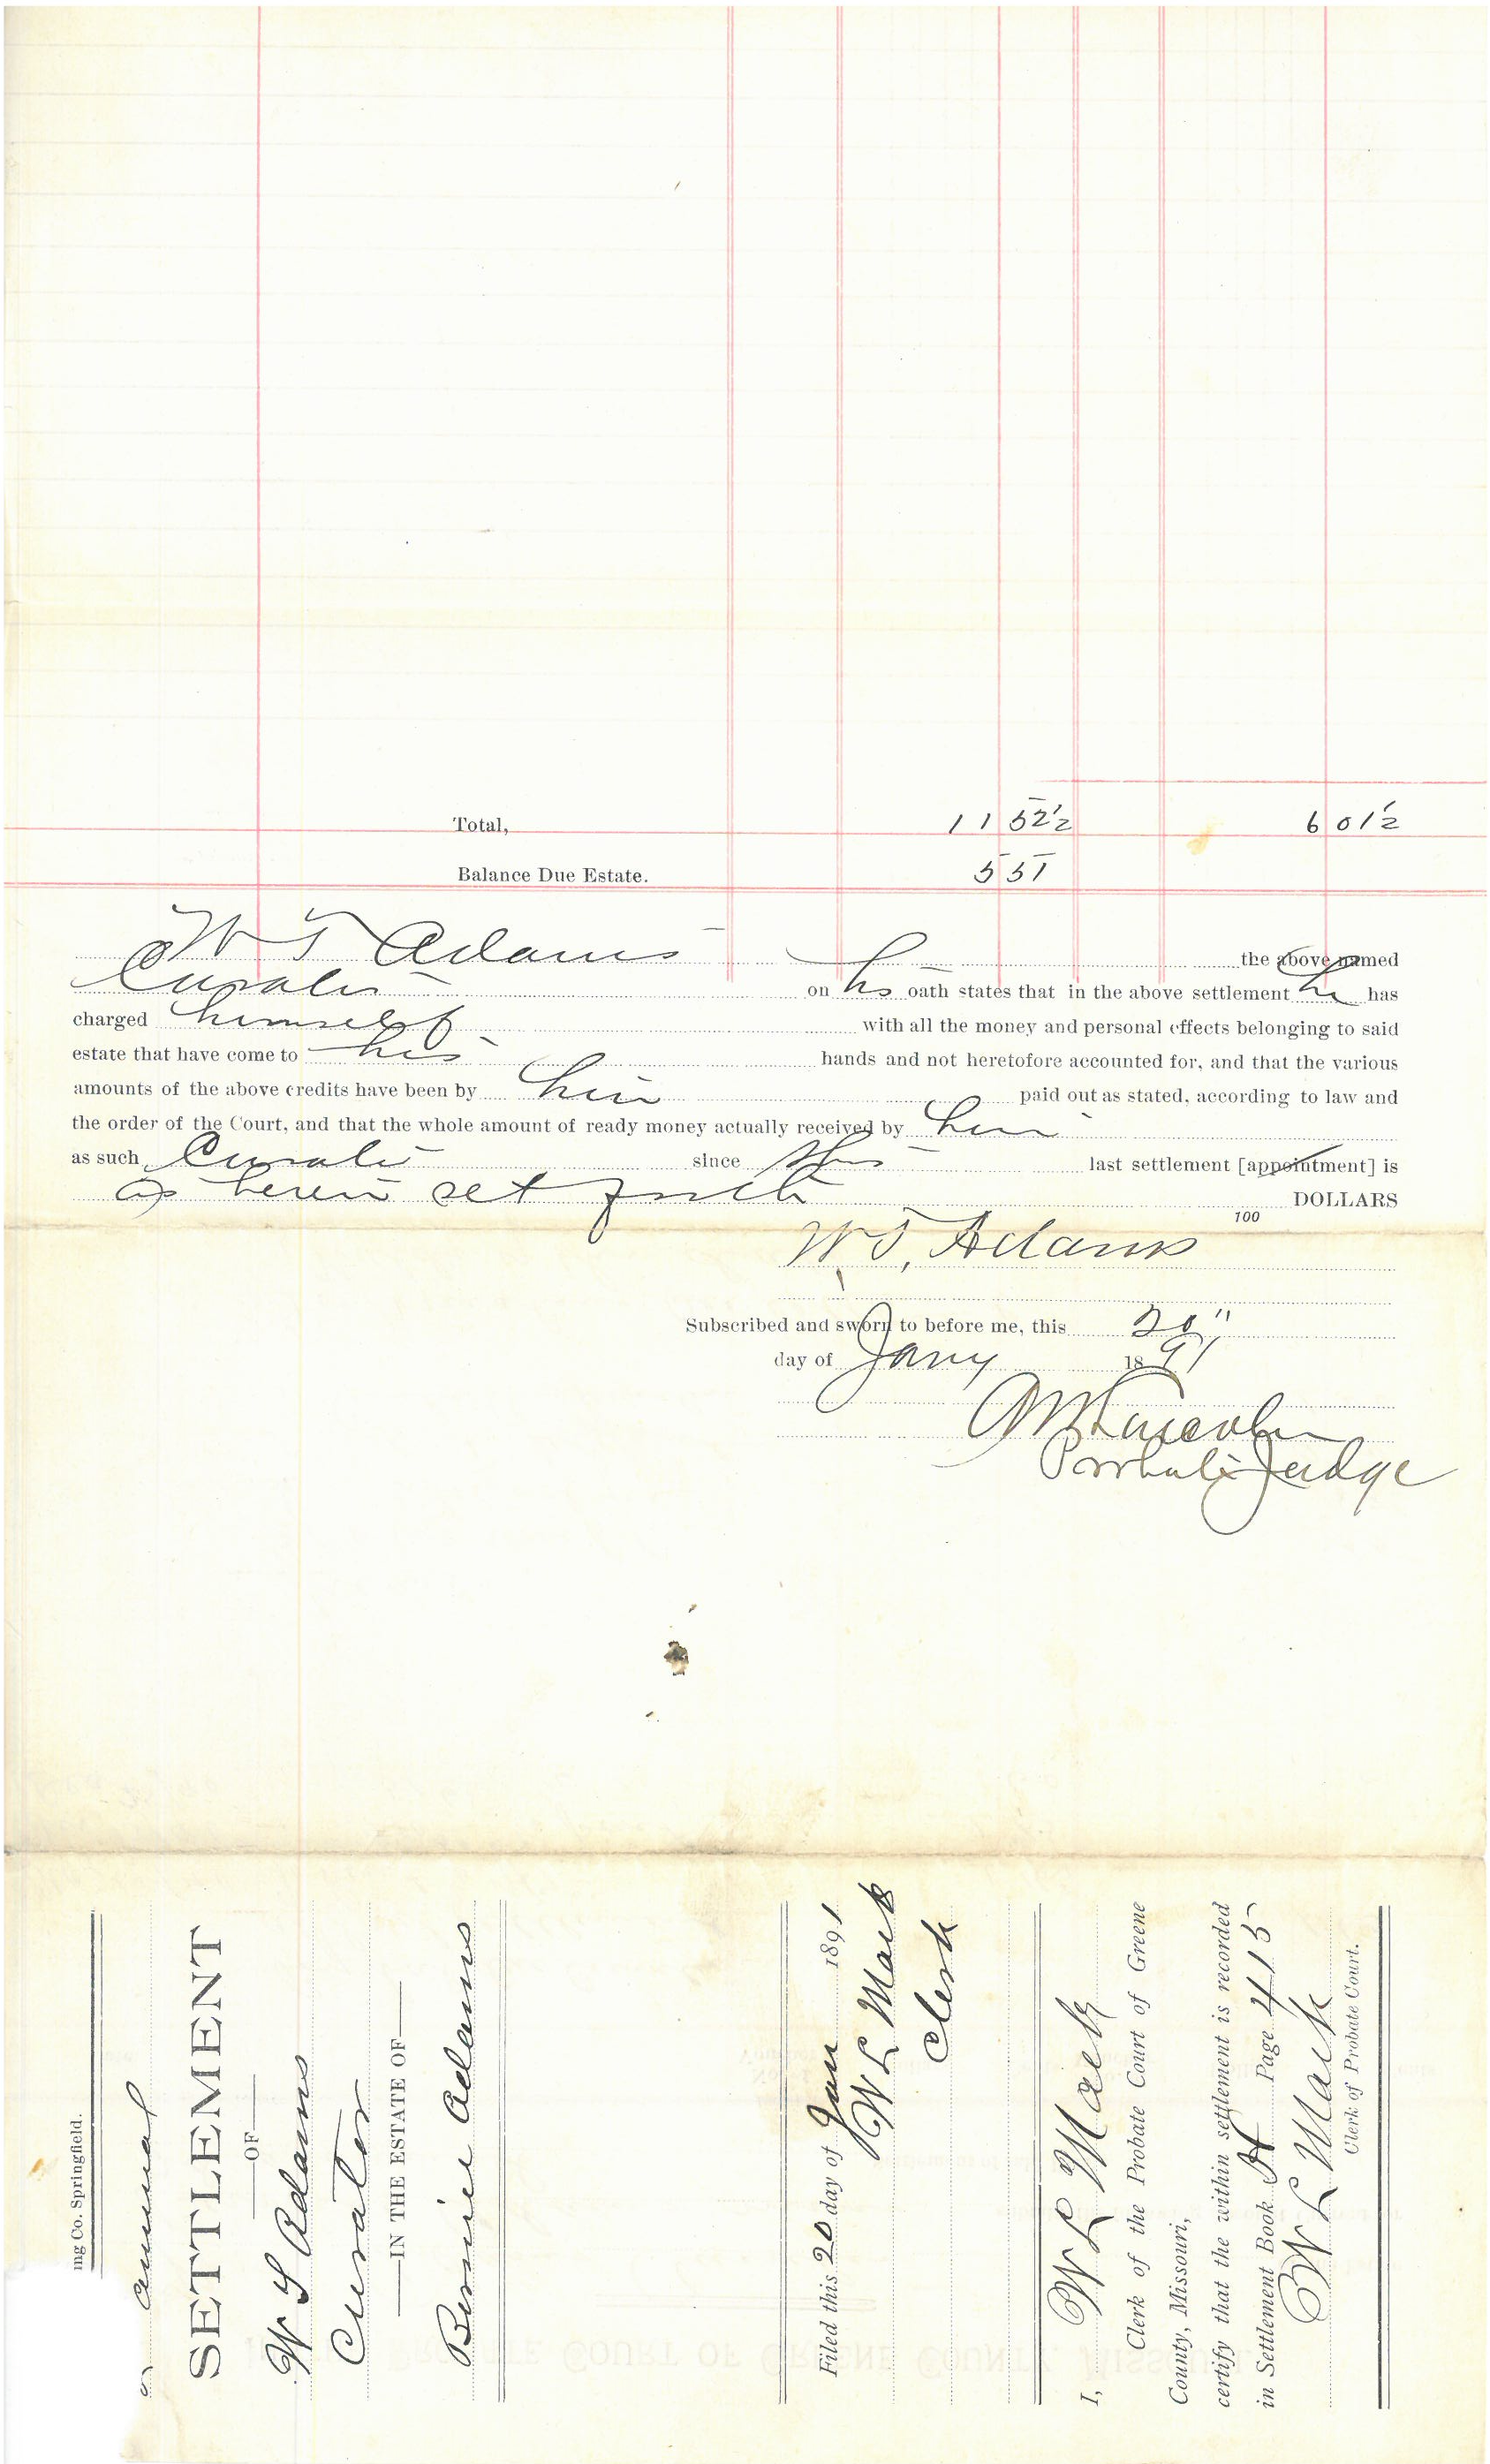 Total, 11 52½ 6 01½
Balance Due Estate. 5 51
W T Adams the above named
Curator on his oath states that in the above settlement he has
charged himself with all the money and personal effects belonging to said
estate that have come to his hands and not heretofore accounted for, and that the various
amounts of the above credits have been by him paid out as stated, according to law and
the order of the Court, and that the whole amount of ready money actually received by him
as such Curator since his last settlement [appointment] is
as herein set forth DOLLARS
100
W T, Adams
Subscribed and sworn to before me, this 20"
day of Jany 1891
Probate Judge
ing Co. Springfield.
annual
SETTLEMENT
—OF—
W S Adams
Curator
—IN THE ESTATE OF—
Bennie Adams
Filed this 20 day of Jan 1891
W L Mack
Clerk
I, W L Mack
Clerk of the Probate Court of Greene
County, Missouri,
certify that the within settlement is recorded
in Settlement Book H Page 415
W L Mack
Clerk of Probate Court.